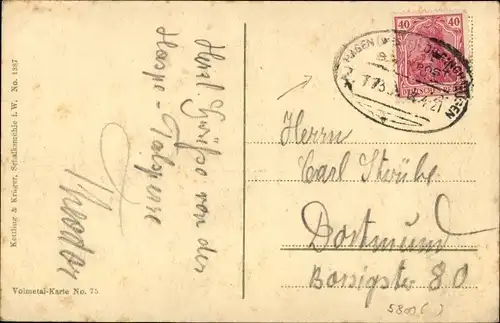 Kettling & Krüger, Schalksmühle i. W. No. 1387
Volmetal-Karte No. 75
Herzl. Grüße von der
Haspe-Talsperre
Theodor
40 40
HAGEN
Herrn
Carl Strübe
Dortmund
Borsigstr 80
5800